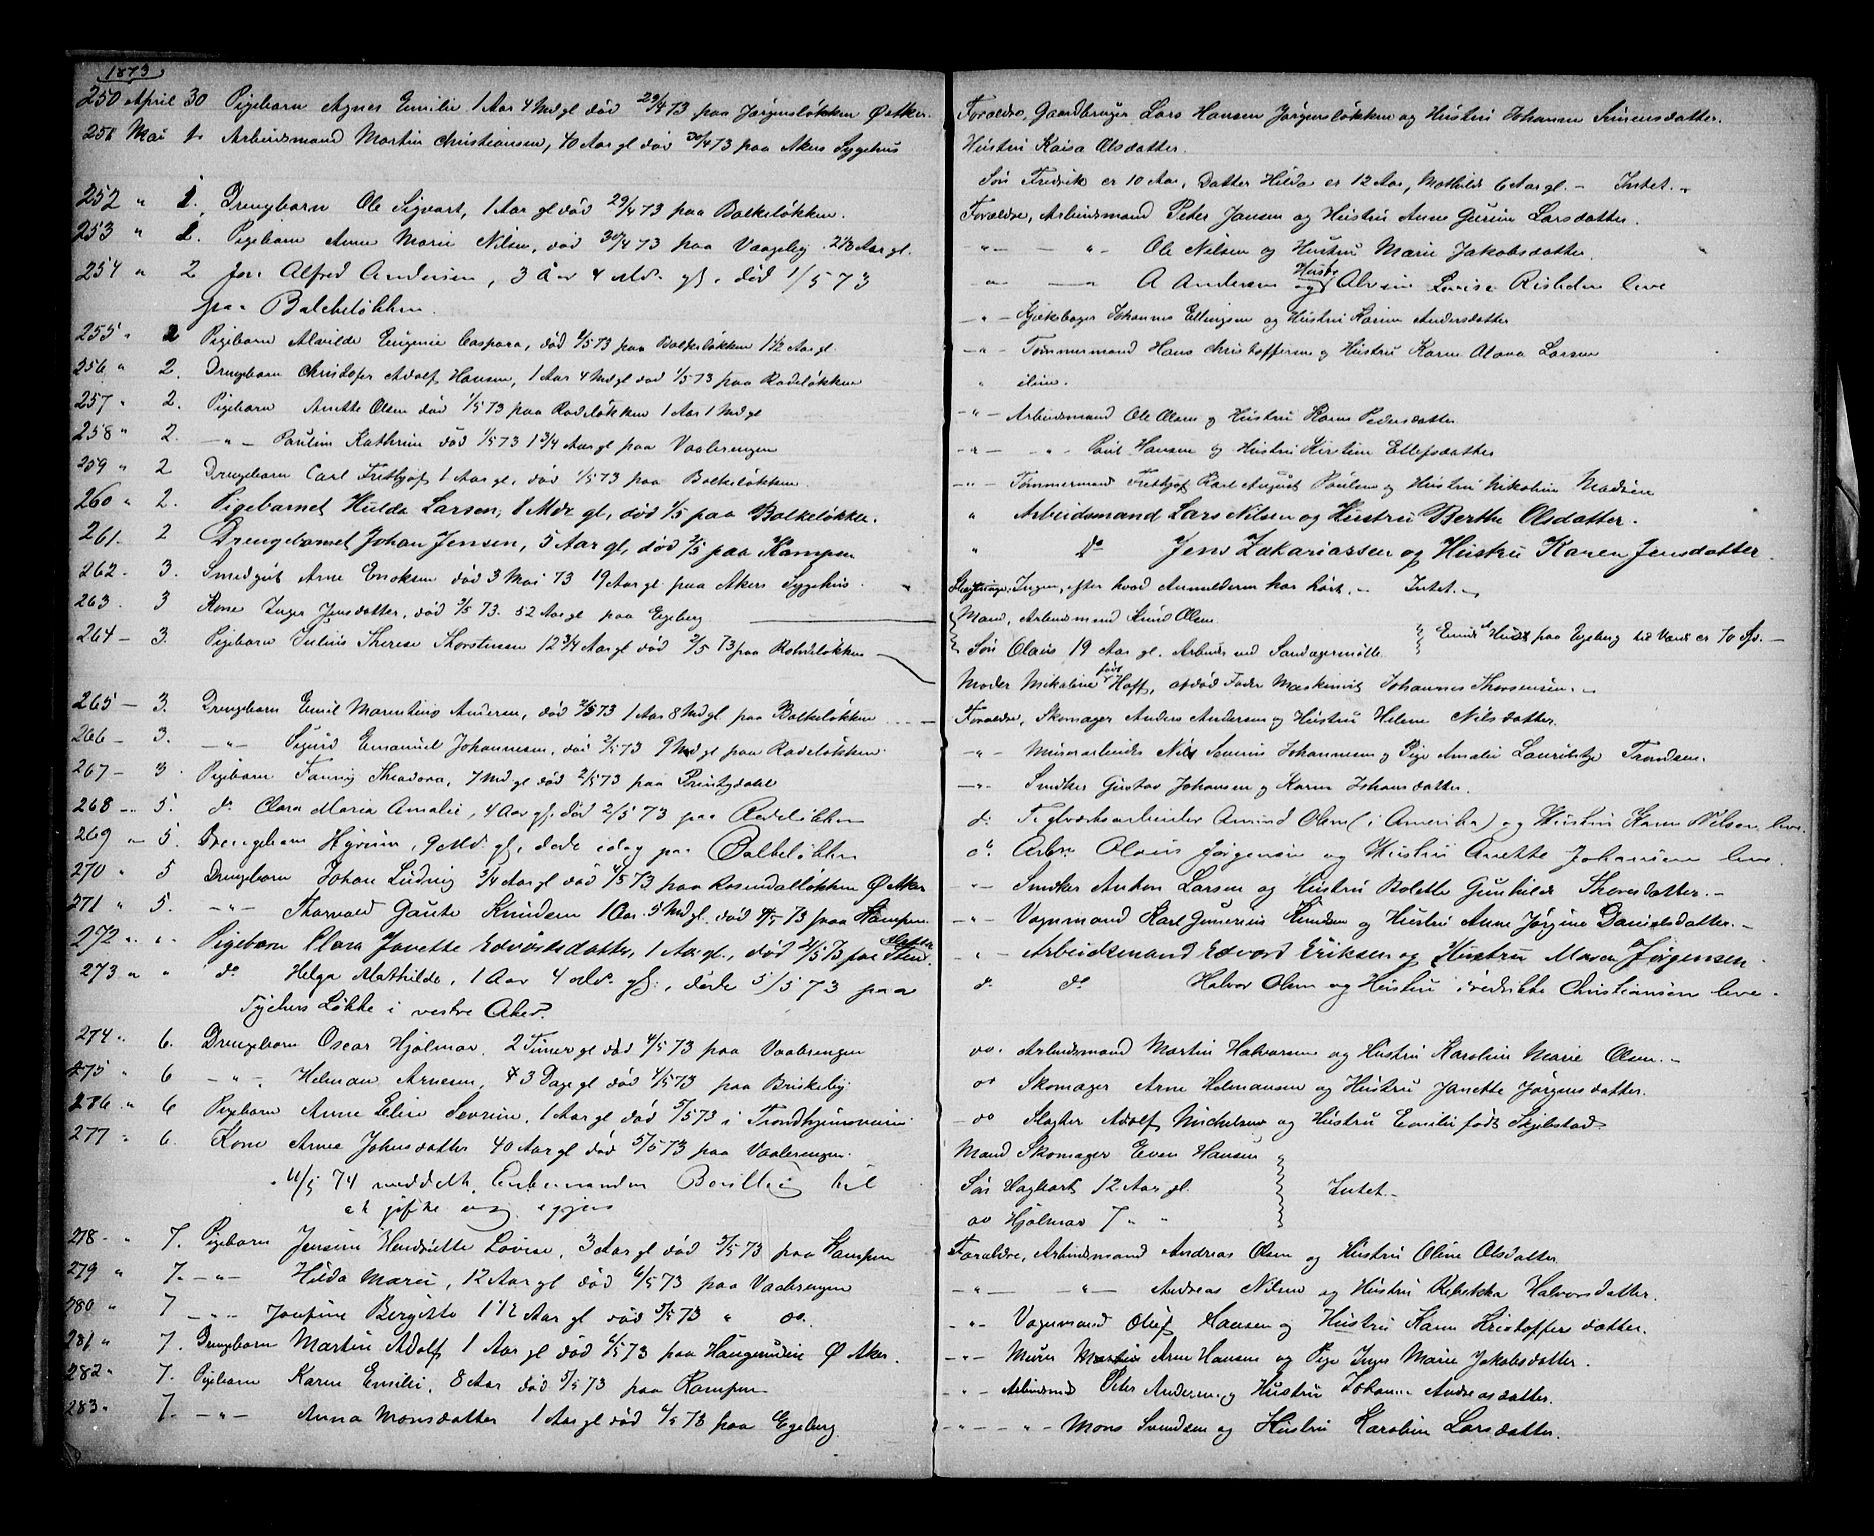 1873
250 April 30 Pigebarn Agnes Emilie 1 Aar 4 Md gl død 29/4 73 paa Jørgensløkken Ø Aker. Forældre, Gaardbruger Lars Hansen Jørgensløkken og Hustru Johanne Simensdatter.
251 Mai 1. Arbeidsmand Martin Christiansen, 40 Aar gl død 30/4 73 paa Akers Sygehus Hustru Kaisa Olsdatter.
Søn Fredrik er 10 Aar, Datter Hilda er 12 Aar, Mathilde 6 Aar gl. - Intet. -
252 " 1. Drengbarn Ole Sigvart, 1 Aar gl død 29/4 73 paa Balkeløkken. Forældre, Arbeidsmand Peter Jansen og Hustru Anne Larsdatter.
253 " 1. Pigebarn Anne Marie Nilsen, død 30/4 73 paa Vaageby Aar gl. -"- -"- Ole Nilsen og Hustru Marie Jakobsdatter.
254 " 2 Alfred Andersen, 3 Aar 4 Md. gl. død 1/5 73 A Andersen og Hustru Lovise leve
paa Balkeløkken.
255 " 2 Pigebarn Alvilde Eugenie Caspara, død 1/5 73 paa Balkeløkken 1 1/2 Aar gl. -"- Johannes Ellingsen og Hustru Karen Andersdatter
256 " 2. Drengbarn Christofer Adolf Hansen, 1 Aar 4 Md gl død 1/5 73 paa Rodeløkken -"- Tømmermand Hans Christoffersen og Hustru Karen Olava Larsen
257 " 2. Pigebarn Anette Olsen død 1/5 73 paa Rodeløkken 1 Aar 1 Md gl
-"- Arbeidsmand Ole Olsen og Hustru Karen Pedersdatter
258 " 2. -"- Pauline Kathrine død 1/5 73 1 3/4 Aar gl paa Vaalerengen -"- -"- Paul Hansen og Hustru Kirstine Ellefsdatter
259 " 2 Drengebarn Carl Frithjof 1 Aar gl, død 1/5 73 paa Balkeløkken. -"- Tømmermand Frithjof Karl August Paulsen og Hustru Nikoline Madsen
260 " 2. Pigebarnet Hulda Larsen, 1 Mdr gl, død 1/5 paa Balkeløkke. " Arbeidsmand Lars Nilsen og Hustru Berthe Olsdatter.
261. 2 Drengebarnet Johan Jensen, 5 Aar gl, død 2/5 paa Kampen " Do Jens Zakariassen og Hustru Karen Jensdatter.
262. 3. Smedgut Arne Enoksen død 3 Mai 73 19 Aar gl. paa Akers Sygehus. Ingen, efter hvad Anmelderen har hørt. - Intet. -
263. 3 Kone Inger Jensdatter, død 2/5 73. 52 Aar gl paa Egeberg Mand, Arbeidsmand Knud Olsen.
Søn Olaus 19 Aar gl. Arbeider ved Sandagermølle. Eiendom Hus paa Egeberg til Værdi er 70 Spd. -
264 - 3. Pigebarn Julius Therese Thorstensen 12 3/4 Aar gl død 2/5 73 paa Rodeløkken Moder Mikaline født Hoff, afdød Fader Maskinist Johannes Thorstensen. -
265 - 3. Drengebarn Emil Marentius Andersen, død 2/5 73 1 Aar 8 Md gl. paa Balkeløkken Forældre, Skomager Anders Andersen og Hustru Helene Nilsdatter.
266 - 3. -"- Sigurd Emanuel Johannesen, død 2/5 73 9 Md gl paa Rodeløkken. -"- Murerarbeider Nils Severin Johannesen og Pige Amalie Trondsen.
267 - 3 Pigebarn Fanny Theodora, 7 Md gl død 2/5 73 paa -"- Snedker Gustav Johansen og Karen Johansdatter.
268 - 5. do. Clara Maria Amalie, 4 Aar gl. død 2/5 73 paa Rodeløkken do Teglverksarbeider Amund Olsen (i Amerika) og Hustru Karen Nilsen leve.
269 " 5. Drengebarn 9 Md. gl., døde idag paa Balkeløkken do. Arbm Olaus Jørgensen og Hustru Anette Johansen leve.
270 " 5 Drengebarn Johan Ludvig 3/4 Aar gl død 4/5 73 paa Rosendalløkken Ø Aker -"- Snedker Anton Larsen og Hustru Bolette Gunhilde Thoresdatter. -
271 " 5. -"- Thorvald Gaute Knudsen 1 Aar 5 Md gl. død 4/5 73 paa Kampen. -"- Vognmand Karl Gunerius Knudsen og Hustru Anne Jørgine Danielsdatter. -
272 " " Pigebarn Clara Janette Edvardsdatter, 1 Aar gl., død 2/5 73 paa -"- Arbeidsmand Edvard Eriksen og Hustru Maren Jørgensen.
273 " " do Helga Mathilde, 1 Aar 4 Md. gl., døde 5/5 73 paa do do Halvor Olsen og Hustru Fredrikke Christiansen leve.
Løkke i vestre Aker.
274 " 6. Drengebarn Oscar Hjalmar. 2 Timer gl død 4/5 73 paa Vaalerengen do. Arbeidsmand Martin Halvorsen og Hustru Karoline Marie Olsen. -
275 " 6 -"- Helman Arnesen, 3 Dage gl død 4/5 73 paa Briskeby. do Skomager Arne Helmansen og Hustru Janette Jørgensdatter.
286 " 6 Pigebarn Anne Eline Sevrine, 1 Aar gl død 5/5 73 i Trondhjemsveien do Slagter Adolf Michelsen og Hustru Emilie født Skjelstad.
277 " 6. Kone Anne Johnsdatter 40 Aar gl død 5/5 73 paa Vaalerengen. Mand Skomager Even Hansen
4/5 74 meddelt Enkemanden Bevilling til Søn Hagbart 12 Aar gl. Intet. -
at gifte sig igjen do Hjalmar 7 " "
278 " 7. Pigebarn Jensine Henriette Lovise, 3 Aar gl død 5/5 73 paa Kampen Forældre, Arbeidsmand Andreas Olsen og Hustru Oline Olsdatter.
279 " 7. -"- Hilda Marie, 12 Aar gl død 6/5 73 paa Vaalerengen -"- -"- Andreas Nilsen og Hustru Rebekka Halvorsdatter.
280 " 7 -"- Josefine Bergitte 1 1/2 Aar gl død 5/5 73 " do. -"- Vognmand Oluf Hansen og Hustru Karen Kristoffersdatter.
281 " 7. Drengbarn Martin Adolf 1 Aar gl død 6/5 73 paa Haugerudeie Ø Aker. -"- Murer Arne Hansen og Pige Inger Marie Jakobsdatter.
282 " 7. Pigebarn Karen Emilie, 8 Aar død 5/5 73 paa Kampen -"- Arbeidsmd Peter Andersen og Hustru Johanne Andreasdatter.
283 " 7. -"- Anna Monsdatter 1 Aar gl død 6/5 73 paa Egeberg. -"- -"- Mons Svendsen og Hustru Karoline Larsdatter.